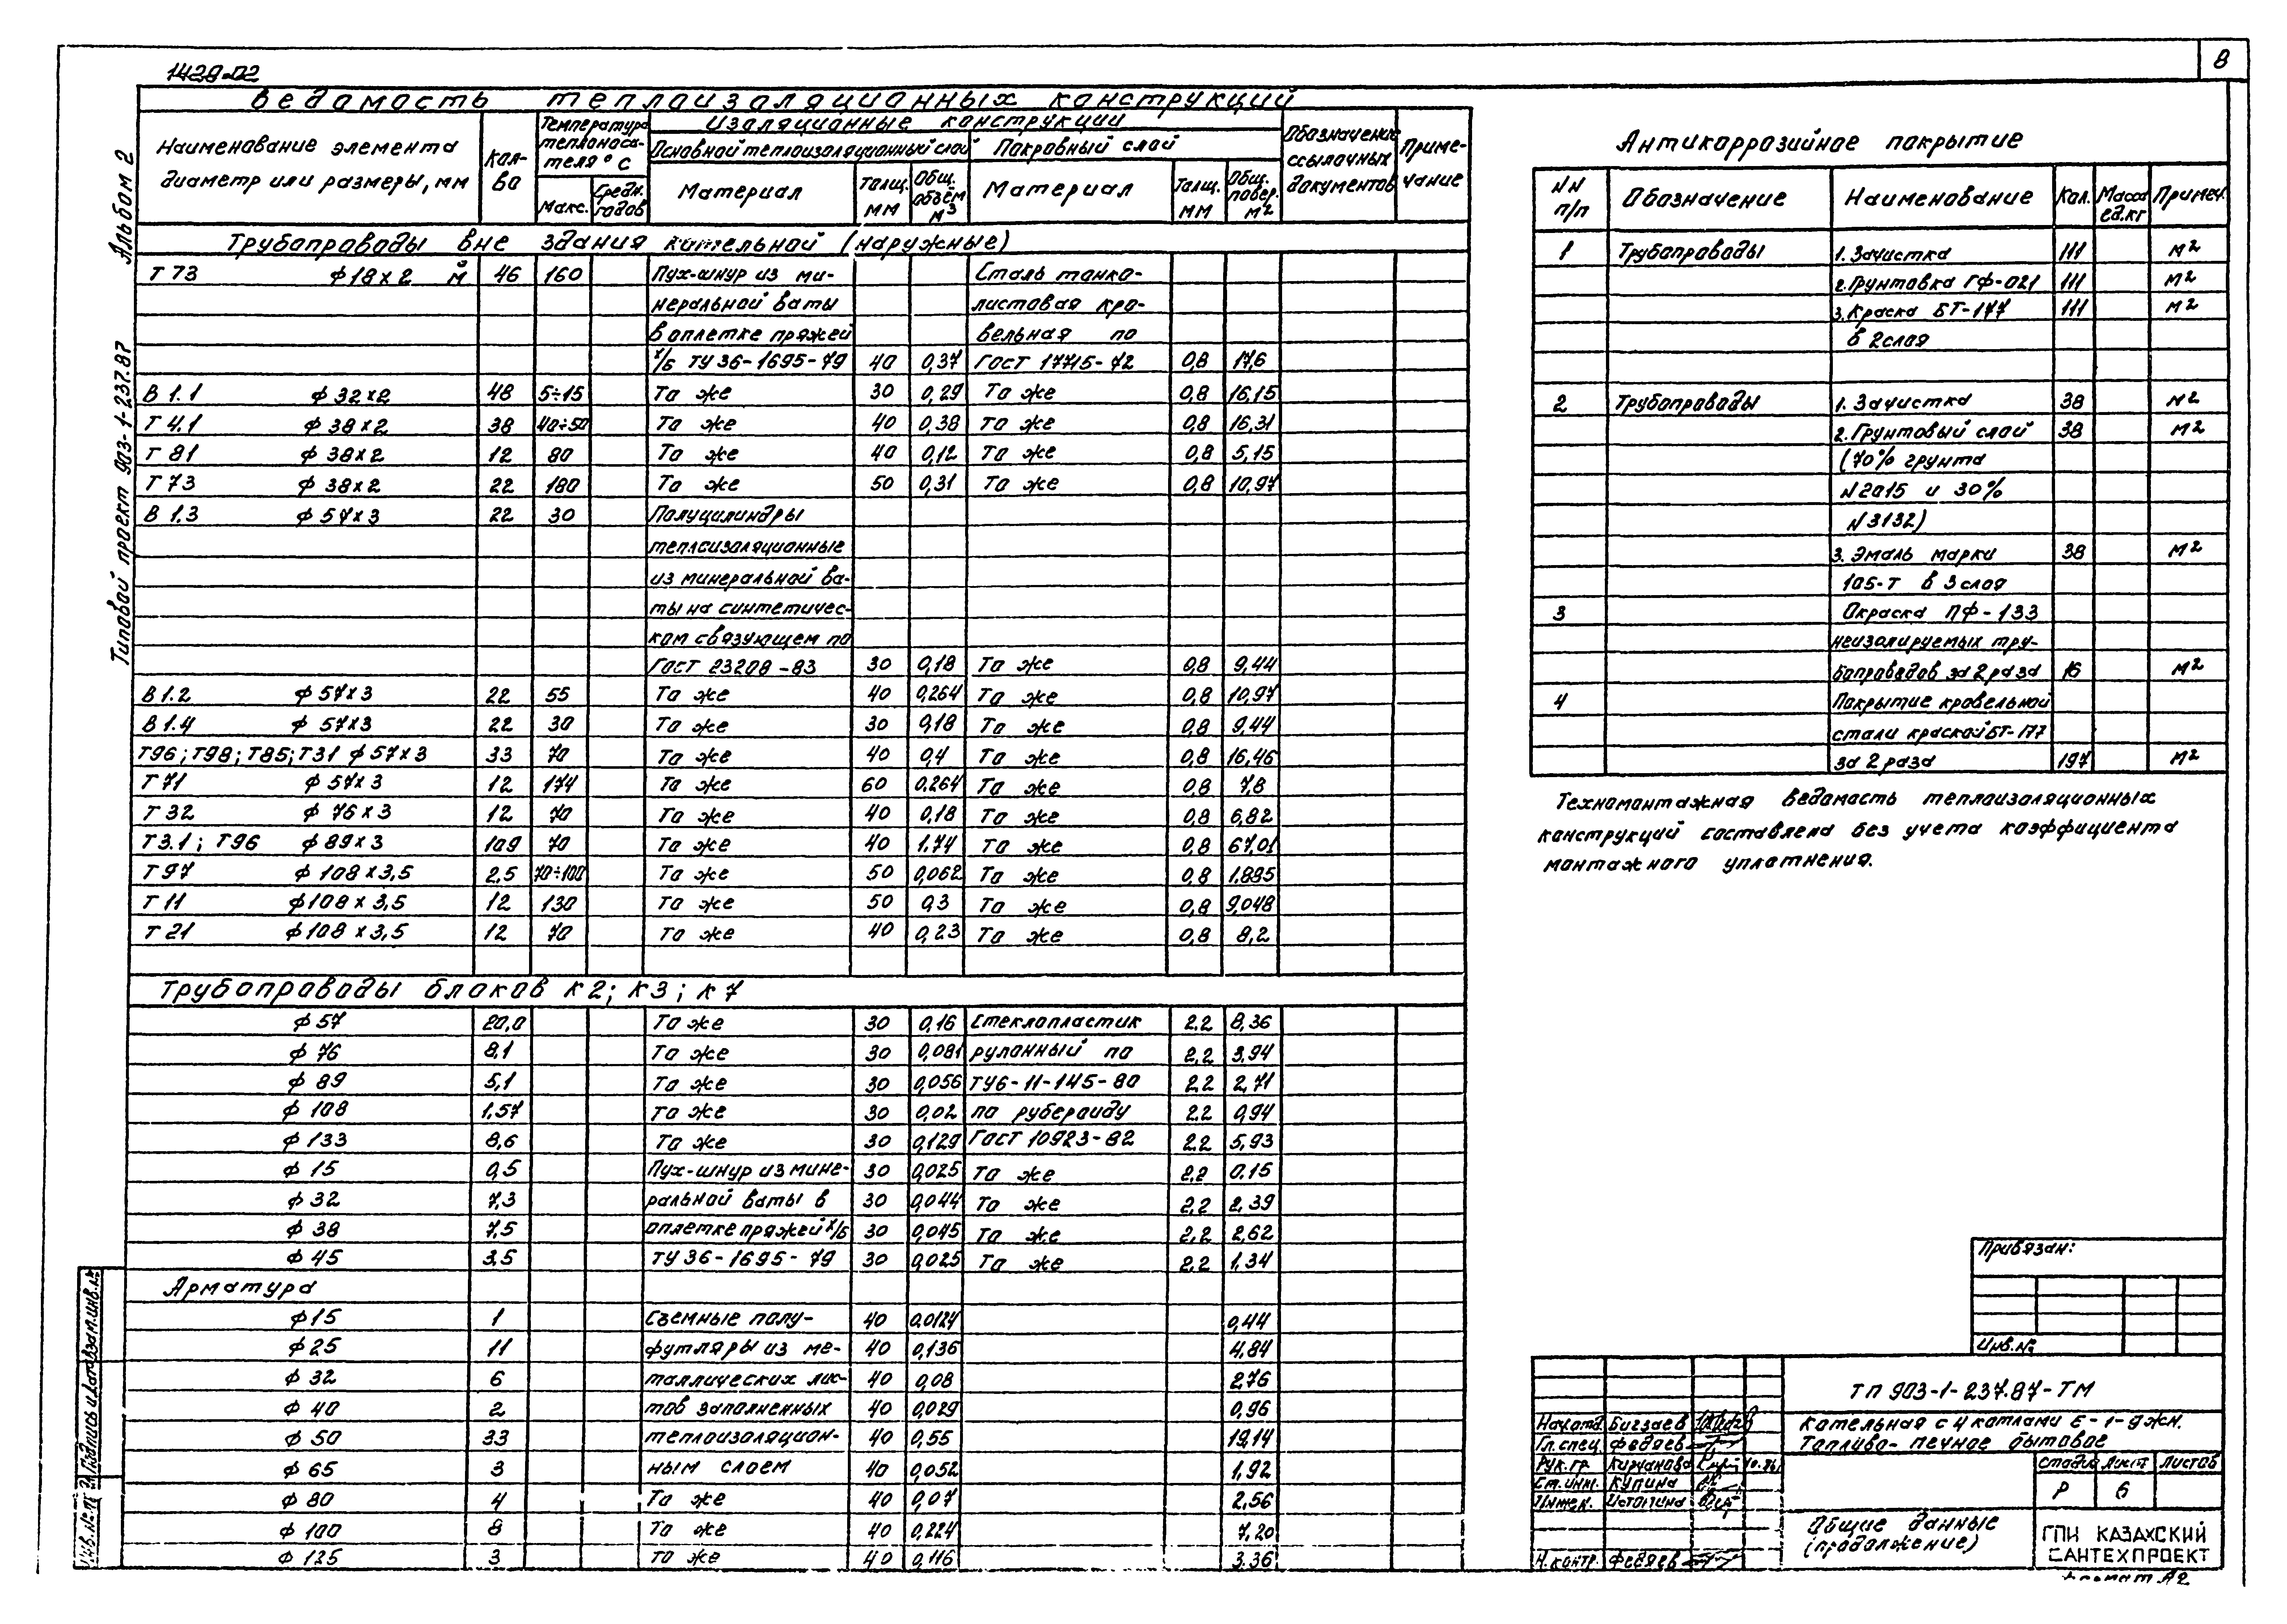 8
1428-02
Альбом 2
Типовой проект 903-1-237.87
Ведомость теплоизоляционных конструкций
Наименование элемента диаметр или размеры, мм
Кол-во
Температура теплоноси-теля °С
Макс.
Средн. годов
Изоляционные конструкции
Основной теплоизоляционный слой
Покровный слой
Материал
Толщ. мм
Общ. объём м3
Материал
Толщ. мм
Общ. повер. м2
Обозначение ссылочных документов
Приме-чание
Трубопроводы вне здания котельной (наружные)
Т 73 ф 18×2 м 46 160 Пух-шнур из ми- Сталь тонко-
неральной ваты листовая кро-
в оплетке пряжей вельная по
х/б ТУ 36-1695-79 40 0,37 ГОСТ 17715-72 0,8 17,6
В 1.1 ф 32×2 48 5÷15 То же 30 0,29 То же 0,8 16,15
Т 4.1 ф 38×2 38 40÷50 То же 40 0,38 То же 0,8 16,31
Т 81 ф 38×2 12 80 То же 40 0,12 То же 0,8 5,15
Т 73 ф 38×2 22 180 То же 50 0,31 То же 0,8 10,97
В 1.3 ф 57×3 22 30 Полуцилиндры
теплоизоляционные
из минеральной ва-
ты на синтетичес-
ком связующем по
ГОСТ 23208-83 30 0,18 То же 0,8 9,44
В 1.2 ф 57×3 22 55 То же 40 0,264 То же 0,8 10,97
В 1.4 ф 57×3 22 30 То же 30 0,18 То же 0,8 9,44
Т96; Т98; Т85; Т31 ф 57×3 33 70 То же 40 0,4 То же 0,8 16,46
Т 71 ф 57×3 12 174 То же 60 0,264 То же 0,8 7,8
Т 32 ф 76×3 12 70 То же 40 0,18 То же 0,8 6,82
Т3.1; Т96 ф 89×3 109 70 То же 40 1,74 То же 0,8 67,01
Т 97 ф 108×3,5 2,5 70÷100 То же 50 0,062 То же 0,8 1,885
Т 11 ф 108×3,5 12 130 То же 50 0,3 То же 0,8 9,048
Т 21 ф 108×3,5 12 70 То же 40 0,23 То же 0,8 8,2
Трубопроводы блоков К2; К3; К7
ф 57 20,0 То же 30 0,16 Стеклопластик 2.2 8,36
ф 76 8,1 То же 30 0,081 рулонный по 2.2 3,94
ф 89 5,1 То же 30 0,056 ТУ6-11-145-80 2.2 2,71
ф 108 1,57 То же 30 0,02 по рубероиду 2.2 0,94
ф 133 8,6 То же 30 0,129 ГОСТ 10923-82 2.2 5,93
ф 15 0,5 Пух-шнур из мине- 30 0,025 То же 2.2 0.15
ф 32 7,3 ральной ваты в 30 0,044 То же 2.2 2,39
ф 38 7,5 оплетке пряжей х/б 30 0,045 То же 2.2 2,62
ф 45 3,5 ТУ 36-1695-79 30 0,025 То же 2.2 1,34
Арматура
ф 15 1 Съемные полу- 40 0,0124 0,44
ф 25 11 футляры из ме- 40 0,136 4,84
ф 32 6 таллических лис- 40 0,08 2,76
ф 40 2 тов заполненных 40 0,029 0,96
ф 50 33 теплоизоляцион- 40 0,55 19,14
ф 65 3 ным слоем 40 0,052 1,92
ф 80 4 То же 40 0,07 2,56
ф 100 8 То же 40 0,224 7,20
ф 125 3 То же 40 0,116 3.36
Антикоррозийное покрытие
NN п/п Обозначение Наименование Кол. Масса ед.кг Примеч.
1 Трубопроводы 1. Зачистка 111 м2
2. Грунтовка ГФ-021 111 м2
3. Краска БТ-177 111 м2
в 2 слоя
2 Трубопроводы 1. Зачистка 38 м2
2. Грунтовый слой 38 м2
(70% грунта
N2015 и 30%
N3132)
3. Эмаль марки 38 м2
105-Т в 3 слоя
3 Окраска ПФ-133
неизолируемых тру-
бопроводов за 2 раза 16 м2
4 Покрытие кровельной
стали краской БТ-177
за 2 раза 197 м2
Техномонтажная ведомость теплоизоляционных
конструкций составлена без учета коэффициента
монтажного уплотнения.
Привязан:
Инв.№
ТП 903-1-237.87-ТМ
Нач.отд. Бигзаев
Гл.спец. Федяев
Рук.гр. Кирчанова 10.86
Ст.инж. Купина
Инжен. Истомина
Н.контр. Федяев
Котельная с 4 котлами Е-1-9ДЖН.
Топливо - печное бытовое
Стадия Лист Листов
Р 6
Общие данные
(продолжение)
ГПИ КАЗАХСКИЙ
САНТЕХПРОЕКТ
Формат А2
Взам.инв.№
Подпись и дата
Инв.№ п